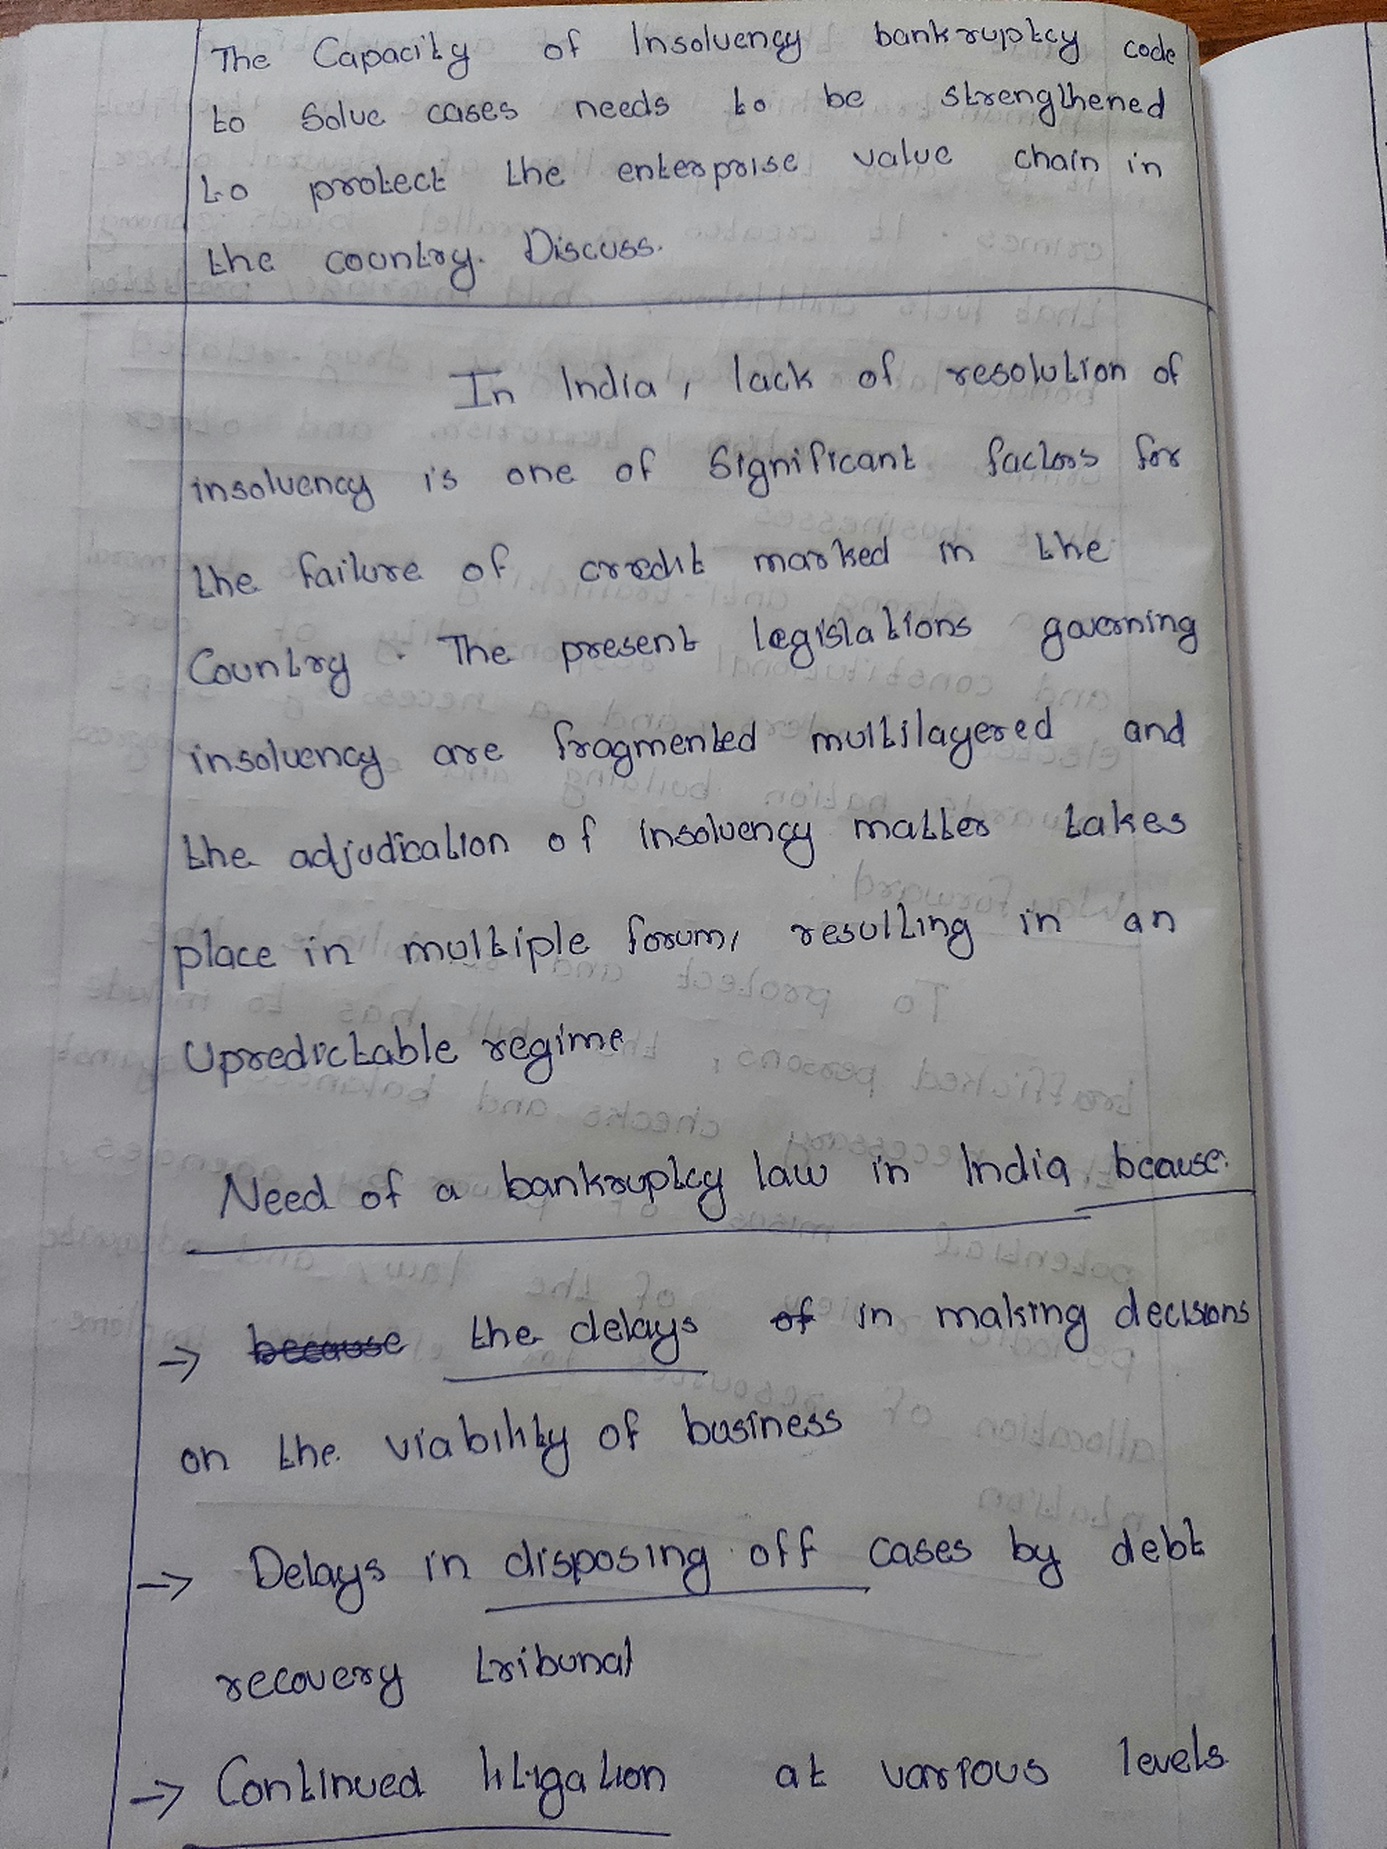 The Capacity of Insolvency bankruptcy code
to Solve cases needs to be strengthened
to protect the enterprise value chain in
the country. Discuss.
In India, lack of resolution of
insolvency is one of Significant factors for
the failure of credit marked in the
Country. The present legislations governing
insolvency are fragmented multilayered and
the adjudication of insolvency matter takes
place in multiple forum, resulting in an
Upredictable regime
Need of a bankruptcy law in India bcause:
→ because the delays of in making decisions
on the viability of business
→ Delays in disposing off cases by debt
recovery tribunal
→ Continued litigation at various levels.